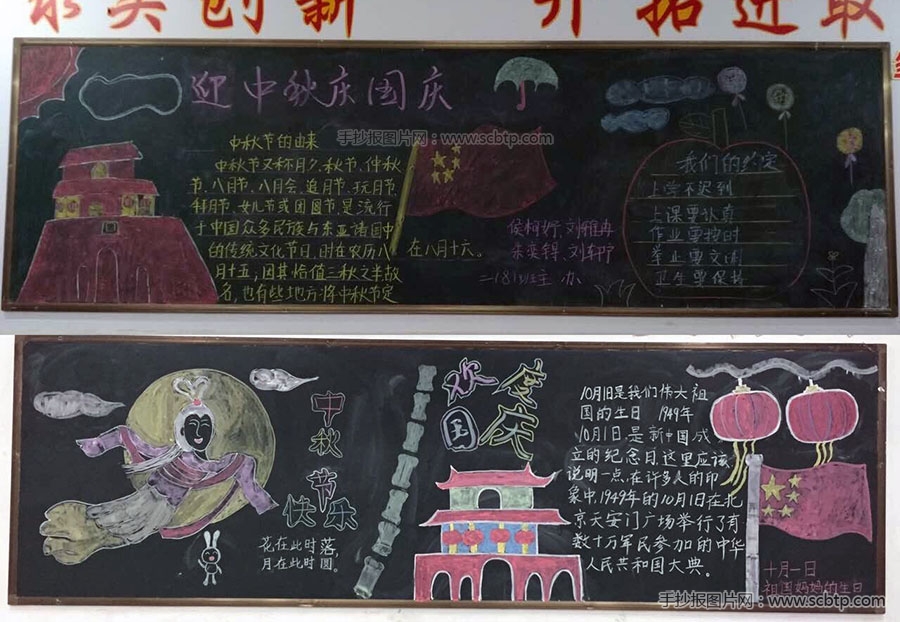 求实创新 开拓进取
迎中秋庆国庆
手抄报图片网:www.scbtp.com
中秋节的由来
中秋节又称月夕、秋节、仲秋
节、八月节、八月会、追月节、玩月节、
拜月节、女儿节或团圆节,是流行
于中国众多民族与东亚诸国中
的传统文化节日,时在农历八
月十五;因其恰值三秋之半,故
名,也有些地方将中秋节定
在八月十六。
刘雅冉
刘轩
主办
我们的约定
上学不迟到
上课要认真
作业要按时
举止要文明
卫生要保持
中秋节
快乐
花在此时落,
月在此时圆。
欢度
国庆
10月1日是我们伟大祖
国的生日 1949年
10月1日,是新中国成
立的纪念日,这里应该
说明一点,在许多人的印
象中,1949年的10月1日在北
京天安门广场举行了有
数十万军民参加的中华
人民共和国大典。
十月一日
祖国妈妈的生日
手抄报图片网:www.scbtp.com